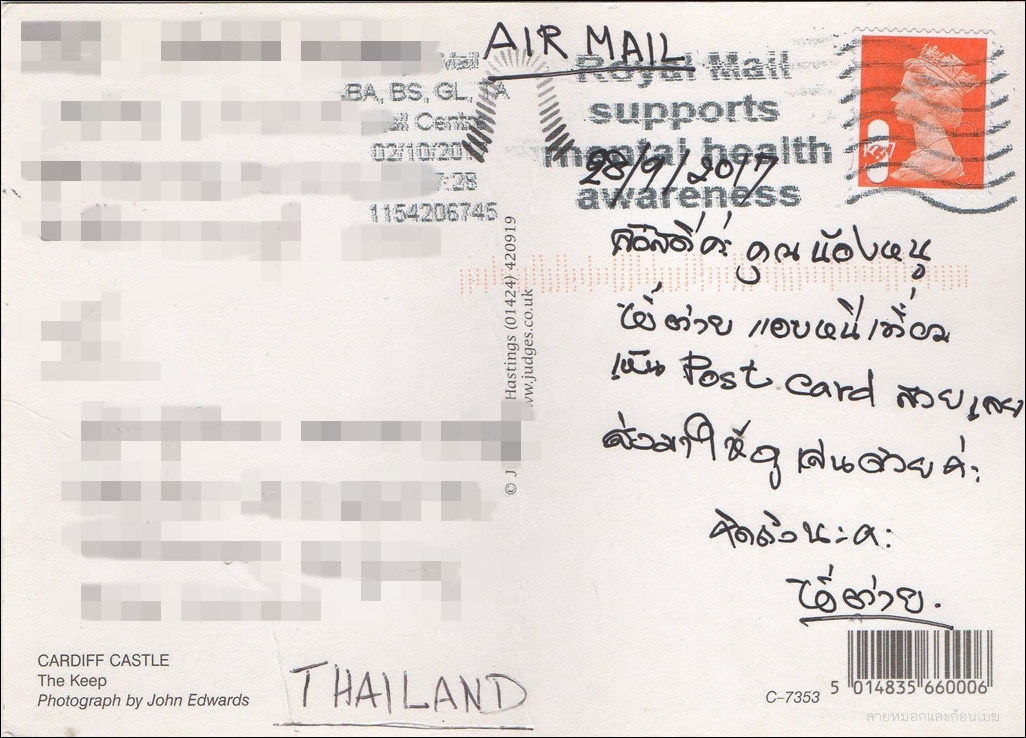 AIR MAIL
Royal Mail
supports
mental health
awareness
Mail
BA, BS, GL, TA
Mail Centre
02/10/201
7:28
1154206745
28/9/2017
สวัสดีค่ะ คุณ น้องหนู
ไข่ต่าย แอบหนีเที่ยว
เห็น Post card สวยเลย
ส่งมาให้ดูเล่นด้วยค่ะ
คิดถึงนะคะ
ไข่ต่าย.
Hastings (01424) 420919
w.judges.co.uk
© J
CARDIFF CASTLE
The Keep
Photograph by John Edwards
THAILAND
C-7353
5 014835 660006
สายหมอกและก้อนเมฆ